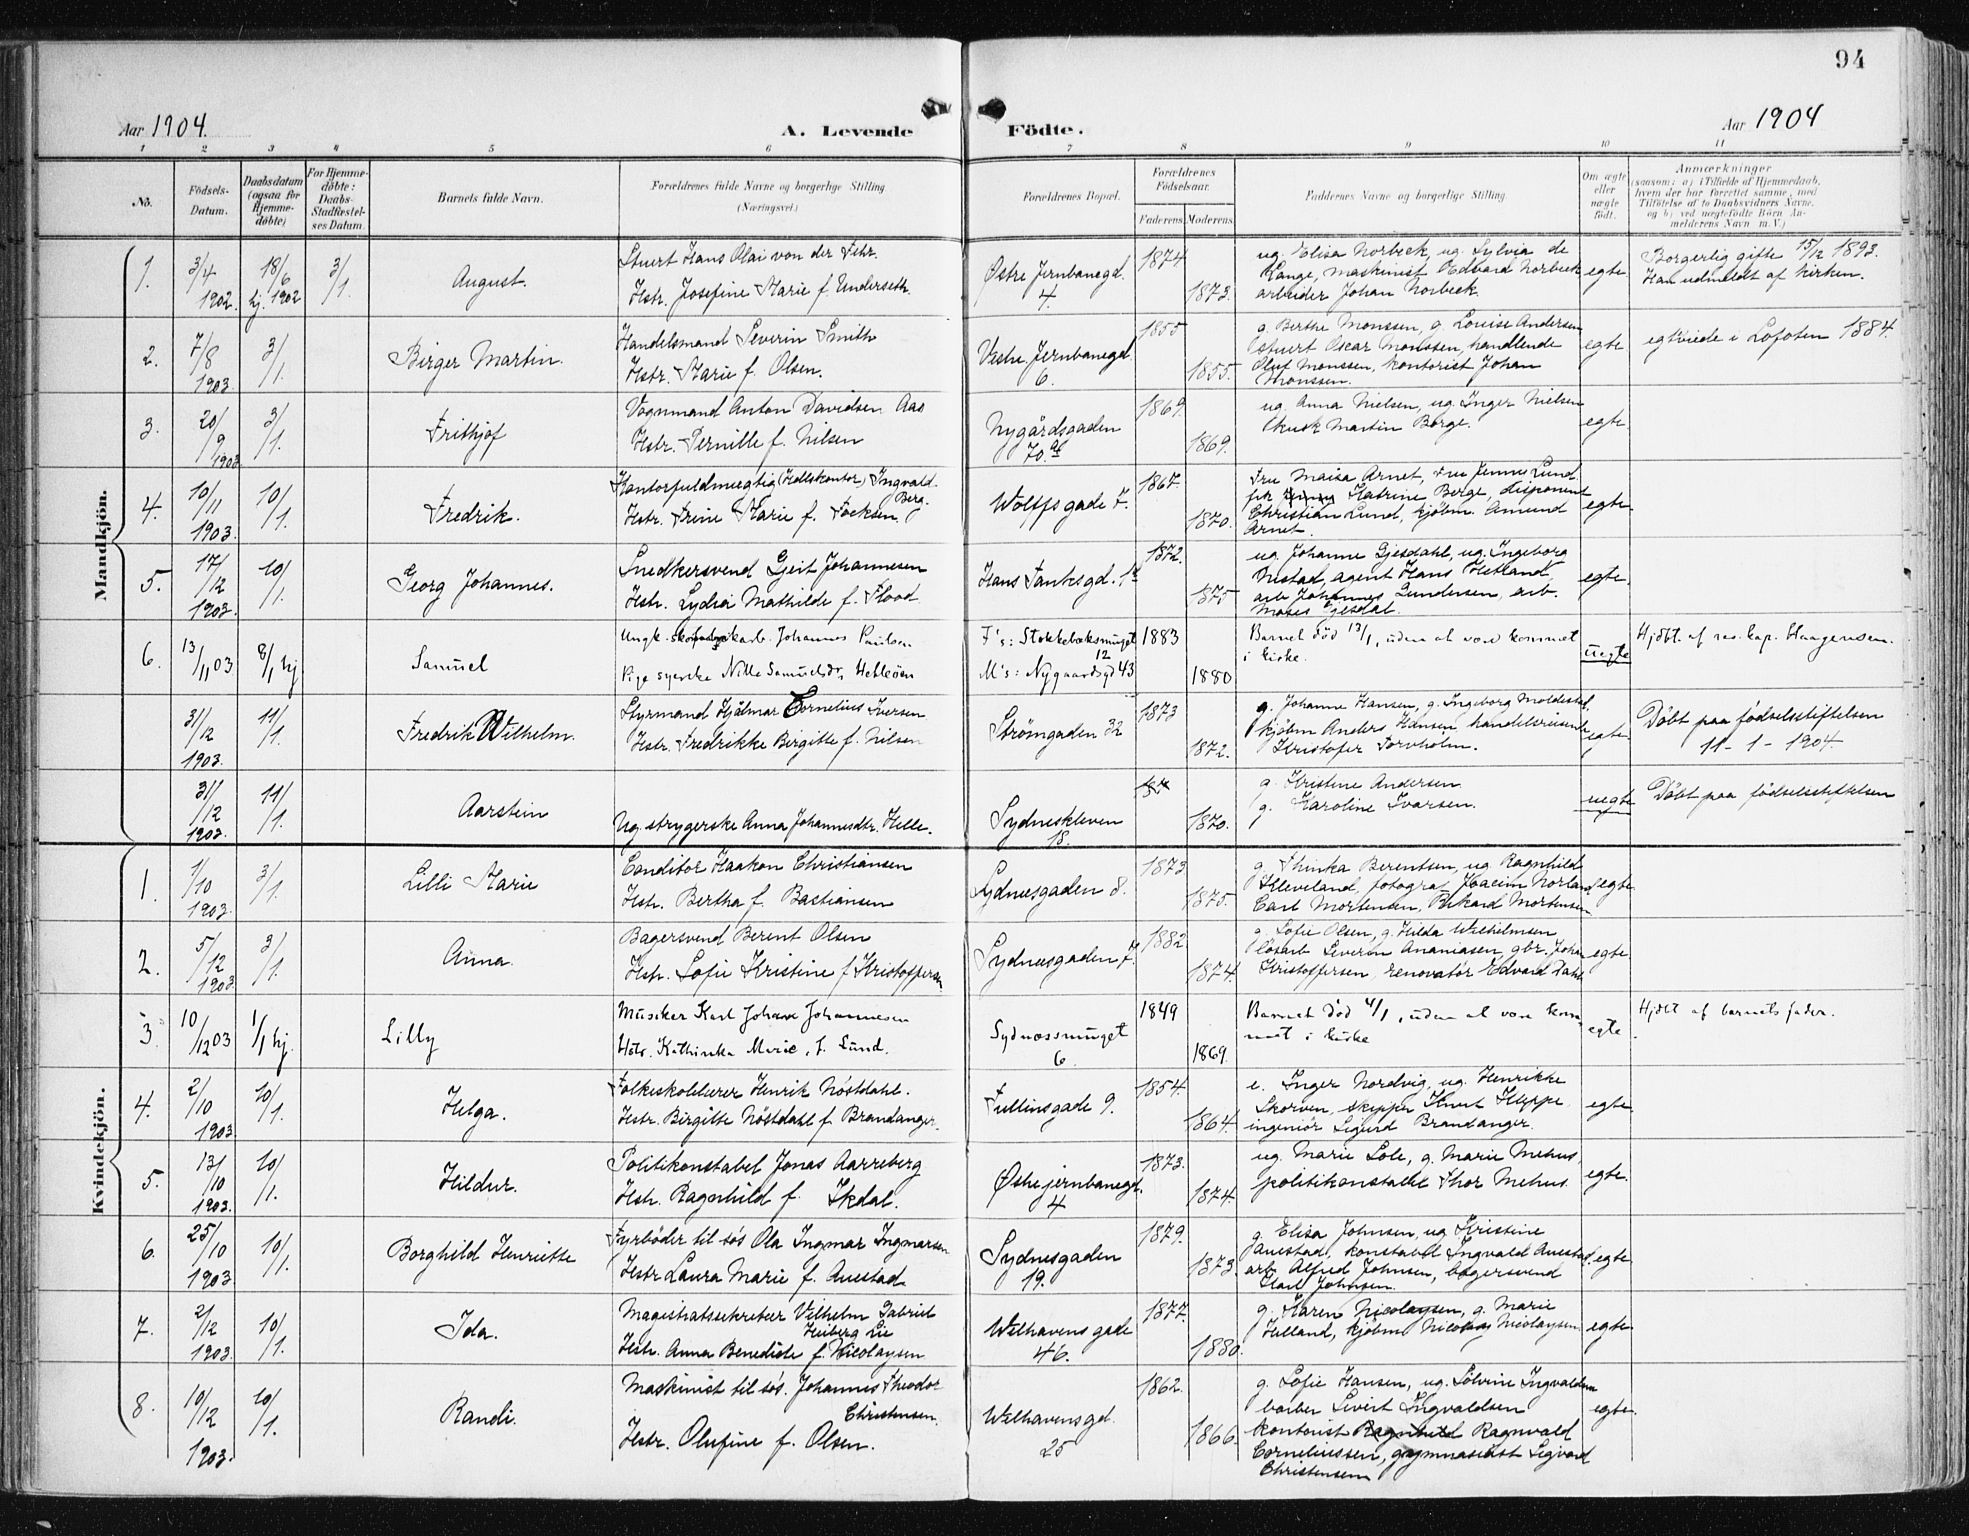 94
Aar 1904.
A. Levende Födte.
Aar 1904
1 2 3 4 5 6 7 8 9 10 11
No.
Födsels-Datum.
Daabsdatum (ogsaa for Hjemme-döbte)
For Hjemme-döbte: Daabs-Stadfæstel-ses Datum.
Barnets fulde Navn.
Forældrenes fulde Navne og borgerlige Stilling
(Næringsvei.)
Forældrenes Bopæl.
Forældrenes Födselsaar.
Faderens Moderens
Faddernes Navne og borgerlige Stilling
Om ægte eller uægte födt.
Anmærkninger
(saasom: a) i Tilfælde af Hjemmedaab, hvem der har forrettet samme, med Tilföielse af to Daabsvidners Navne, og b) ved uegtefödte Börn Anmelderens Navn m. V.)
Mandkjön.
1. 3/4 1902. 18/6 hj. 1902 3/1. August.
Stuert Hans Olai von der Fehr.
Hstr. Josefine Marie f. Underseth.
Østre Jernbanegd. 4.
1874 1873.
ug. Elisa Norbeck, ug. Sylvia de
Lange, maskinist Edvard Norbeck
arbeider Johan Norbeck.
egte
Borgerlig gifte 15/12 1893.
Han udmeldt af kirken.
2. 7/8 1903. 3/1. Birger Martin.
Handelsmand Severin Smith
Hstr. Marie f. Olsen.
Vestre Jernbanegd. 6.
1855 1855.
g. Berthe Monssen, g. Louise Andersen
stuert Oscar Monssen, handlende
Oluf Monssen, kontorist Johan
Monssen.
egte
egtviede i Lofoten 1884.
3. 20/9 1903 3/1. Frithjof
Vognmand Anton Davidsen Aas
Hstr. Pernille f. Nilsen
Nygårdsgaden 70.
1869. 1869.
ug. Anna Nielsen, ug. Inger Nielsen
kusk Martin Berge.
egte
4. 10/11 1903. 10/1. Fredrik.
Kontorfuldmægtig Ingvald
Berg.
Hstr. Trine Marie f. Focksen
Wolffs gade 7.
1867. 1870.
Fru Maisa Arnet, Fru Jenny Lund
frk Katrine Berge, disponent
Christian Lund, kjöbm. Amund
Arnet.
egte.
5. 17/12 1903. 10/1. Georg Johannes.
Snedkersvend Geit Johannesen
Hstr. Lydia Mathilde f. Flood
Hans Tanksgd.
1872. 1875
ug. Johanne Gjesdahl, ug. Ingeborg
agent Hans Hetland,
arb Johannes Gundersen, arb.
Moses Gjesdal.
egte.
6. 13/11 03 8/1 hj Samuel
Ungk. Johannes Paulsen
Pige syerske Nille Samuelsdr. Hetleöen
F's: Stokkebæksmuget 12
M's: Nygaardsgd 43
1883 1880
Barnet död 13/1, uden at være kommet
i kirke.
uegte
Hjdbt. af res. kap. Haagensen.
31/12 1903. 11/1. Fredrik Wilhelm.
Styrmand Hjalmar Cornelius Iversen
Hstr. Fredrikke Birgitte f. Nilsen
Strömgaden 32
1873 1872.
g. Johanne Hansen, g. Ingeborg Moldestad,
kjöbm Anders Hansen handelsreisende
Kristofer Torvholm.
egte
Döbt paa födselsstiftelsen
11-1-1904.
31/12 1903. 11/1. Aarstein
Ug. strygerske Anna Johannesdtr. Helle.
Sydneskleven 18.
1870.
g. Kristine Andersen
g. Karoline Ivarsen.
uegte
Döbt paa födselsstiftelsen
Kvindekjön.
1. 1/10 1903. 3/1. Lilli Marie
Conditor Haakon Christiansen
Hstr. Bertha f. Bastiansen
Sydnesgaden 8.
1873 1875.
g. Thinka Berentsen, ug. Ragnhild
Kleveland, fotograf Joacim Norland
Carl Mortensen, Rikard Mortensen
egte
2. 5/12 1903. 3/1. Anna.
Bagersvend Berent Olsen
Hstr. Sofie Kristine f. Kristoffersen
Sydnesgaden 7.
1882 1874.
g. Sofie Olsen, g. Hilda Wilhelmsen
løsarb Severin Ananiasen, gbr. Johan
Kristoffersen, renovatör Edvard Dahl
egte
3. 10/12 03 1/1 hj. Lilly
Musiker Karl Johan Johannesen
Hstr. Kathinka Marie, f. Lund.
Sydnessmuget 6.
1849 1869.
Barnet död 4/1, uden at være kom-
met i kirke
egte
Hjdbt af barnets fader.
4. 2/10 1903 10/1. Helga.
Folkeskolelærer Henrik Nöstdahl.
Hstr. Birgitte Nöstdahl f. Brandanger.
Fullinsgade 9.
1854. 1864.
e. Inger Nordvig, ug. Henrikke
Skorven, skipper Knut Kleppe
ingeniör Sigurd Brandanger.
egte.
5. 13/10 1903. 10/1. Hildur.
Politikonstabel Jonas Aarreberg
Hstr. Ragnhild f. Ikdal.
Østre jernbanegd. 4
1873. 1874.
ug. Marie Lole, g. Marie Mehus,
politikonstabel Thor Mehus.
egte.
6. 25/10 1903 10/1. Borghild Henriette
Fyrböder til sös Ola Ingmar Ingmarsen
Hstr Laura Marie f. Auestad.
Sydnesgaden 19.
1879. 1873.
g. Elisa Johnsen, ug Kristine
Auestad, konstabel Ingvald Auestad,
arb. Alfred Johnsen, bagersvend
Karl Johnsen.
egte.
7. 2/12 1903. 10/1. Ida.
Magistratssekretær Vilhelm Gabriel
Heiberg Lie
Hstr. Anna Benedicte f. Nicolaysen
Welhavens gade 46.
1877. 1880.
g. Karen Nicolaysen, g. Marie
Helland, kjöbm Nicolay Nicolaysen
egte.
8. 10/12 1903. 10/1. Randi.
Maskinist til sös. Johannes Theodor
Christensen.
Hstr. Olufine f. Olsen.
Welhavensgd. 25
1862. 1866.
g. Sofie Hansen, ug. Sölvine Ingvaldsen
barber Sivert Ingvaldsen
kontorist Ragnvald
Corneliussen, gymnasiast Sigvard
Christensen
egte.